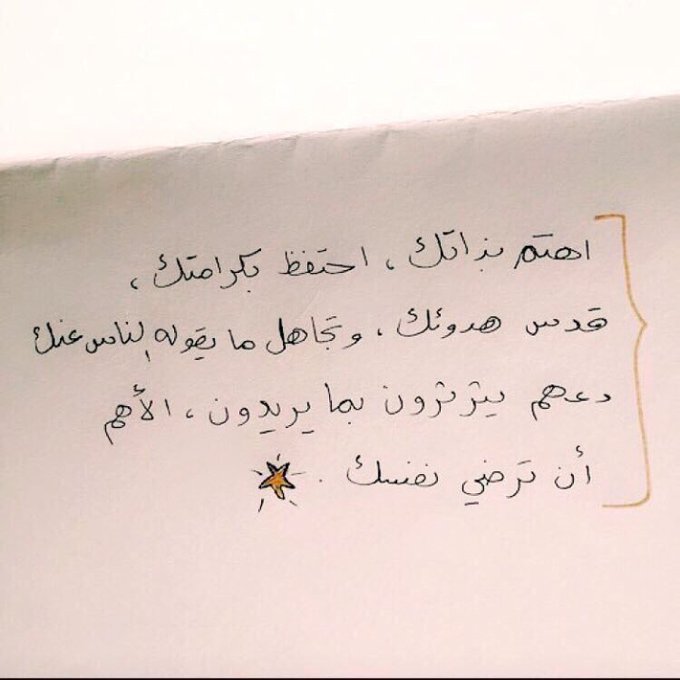 اهتم بذاتك ، احتفظ بكرامتك ،
قدس هدوئك ، وتجاهل ما يقوله الناس عنك
دعهم يثرثرون بما يريدون ، الأهم
أن ترضي نفسك .